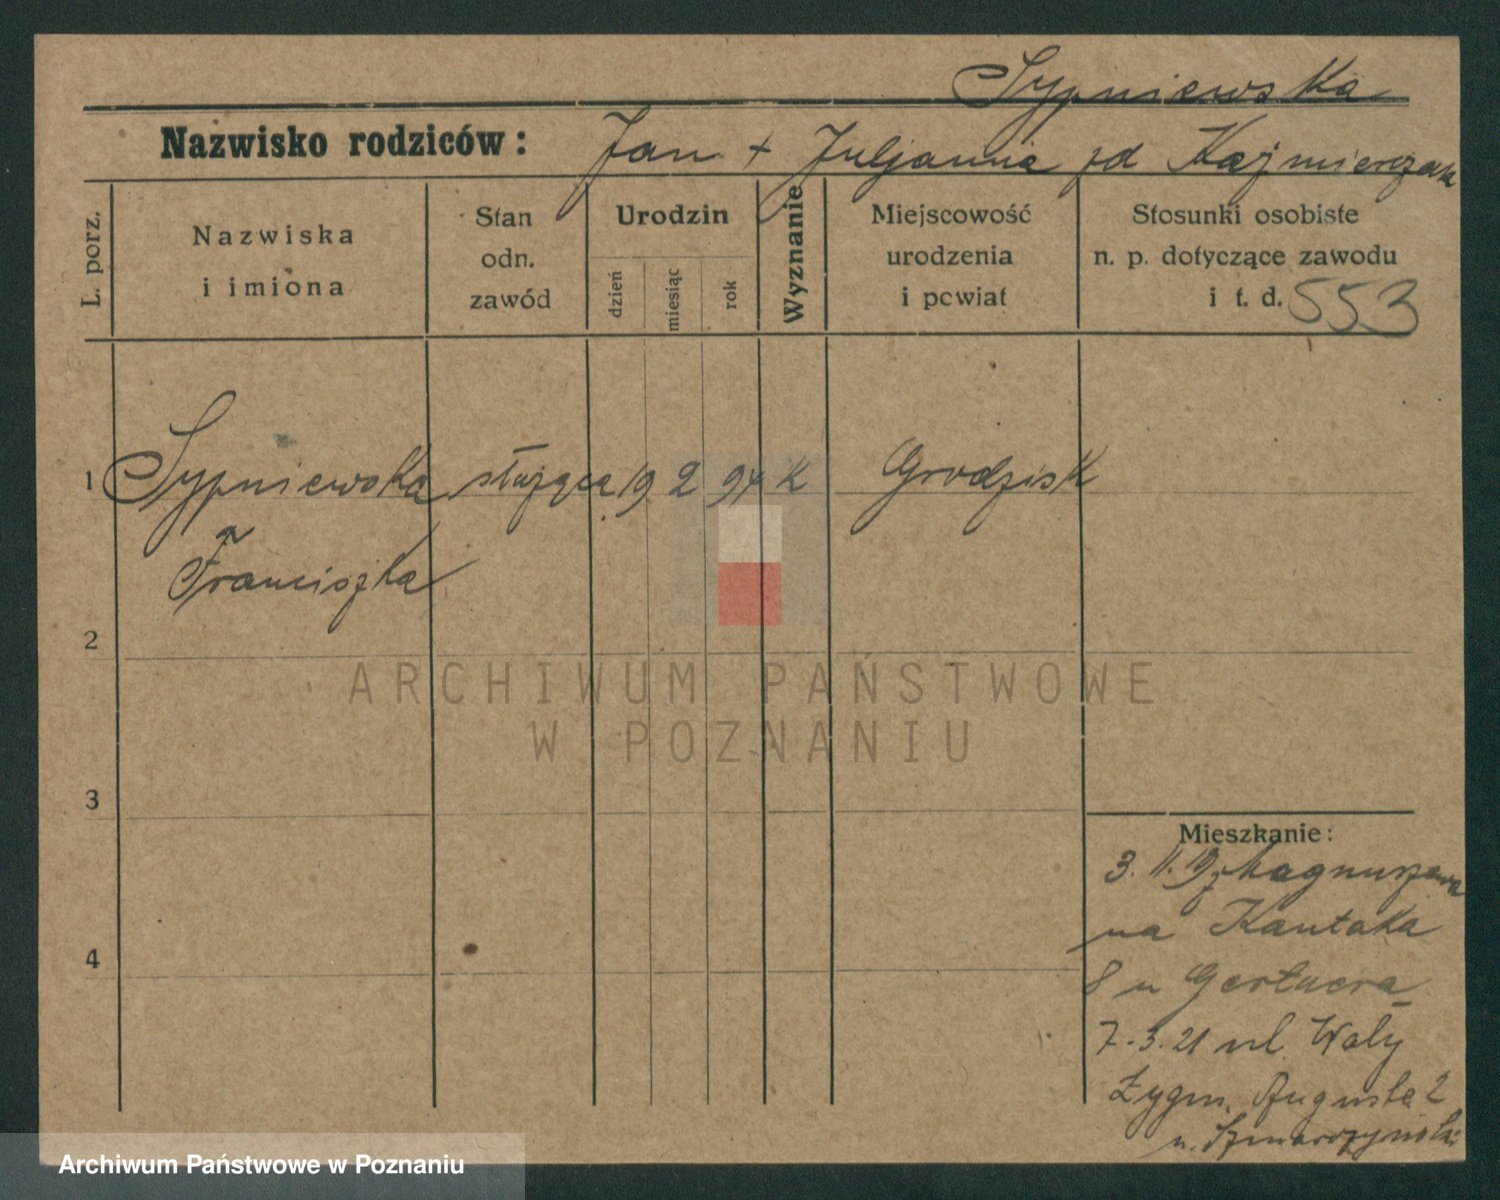 Sypniewska
Nazwisko rodziców: Jan + Juljanna zd Kaźmierczak
L. porz.
Nazwiska
i imiona
Stan
odn.
zawód
Urodzin
dzień
miesiąc
rok
Wyznanie
Miejscowość
urodzenia
i powiat
Stosunki osobiste
n. p. dotyczące zawodu
i t. d. 553
1 Sypniewska służąca 19 2 94 K Grodzisk
Franciszka
2
ARCHIWUM PAŃSTWOWE
W POZNANIU
3
Mieszkanie:
3. 11. 19 z Magnuszewa
na Kantaka
4
8 u
7.3.21 ul. Wały
Zygm. Augusta 2
u.
Archiwum Państwowe w Poznaniu